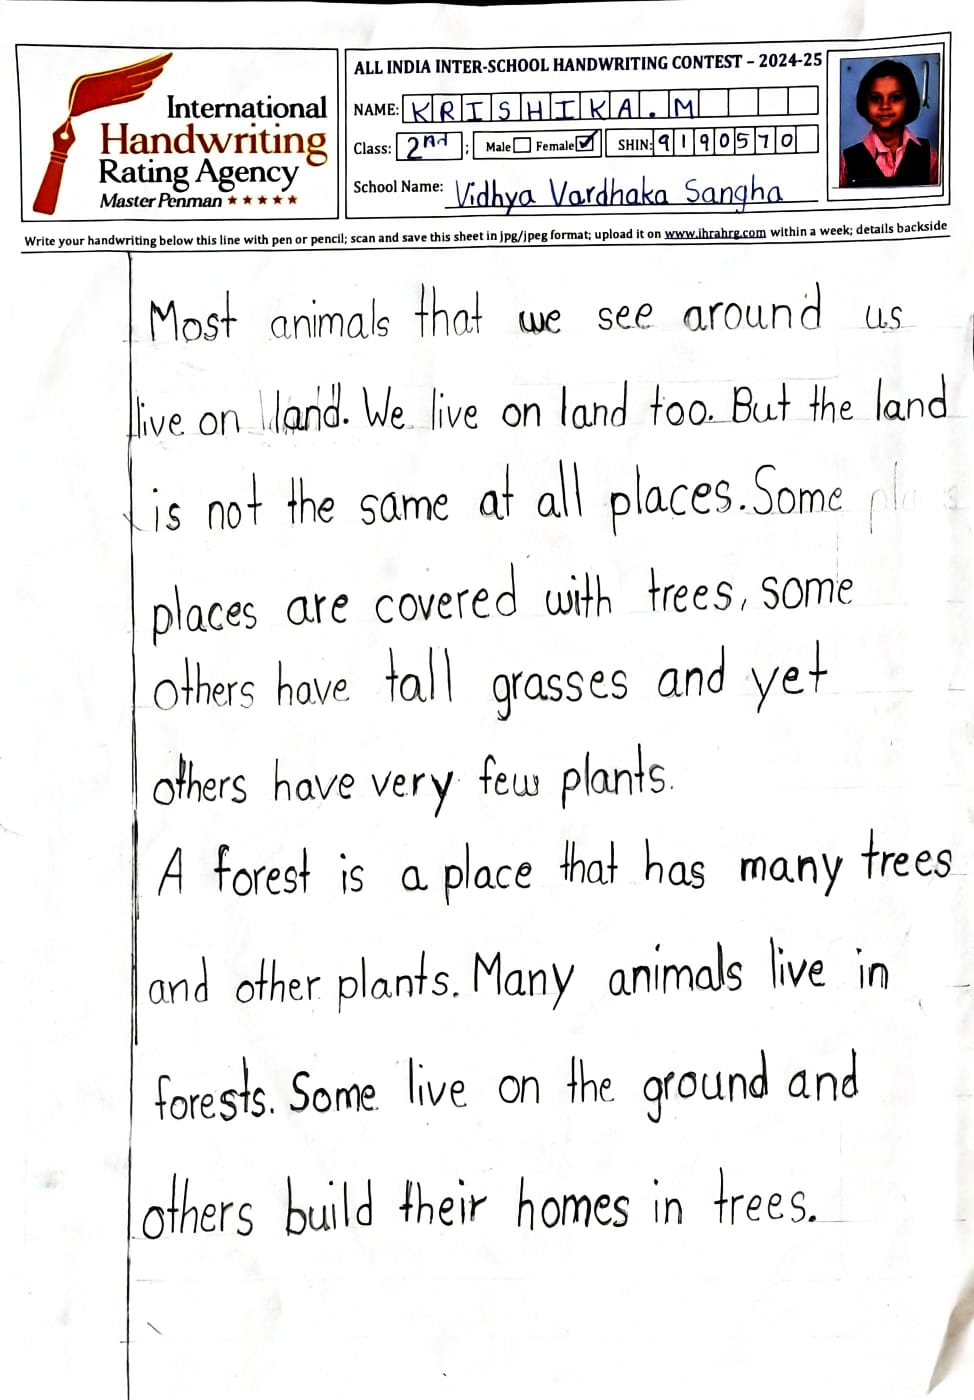 International
Handwriting
Rating Agency
Master Penman ★★★★★
ALL INDIA INTER-SCHOOL HANDWRITING CONTEST – 2024-25
NAME: KRISHIKA.M
Class: 2nd ; Male Female ☑ SHIN: 9190570
School Name: Vidhya Vardhaka Sangha
Write your handwriting below this line with pen or pencil; scan and save this sheet in jpg/jpeg format; upload it on www.ihrahrg.com within a week; details backside
Most animals that we see around us
live on land. We live on land too. But the land
is not the same at all places. Some
places are covered with trees, some
others have tall grasses and yet
others have very few plants.
A forest is a place that has many trees
and other plants. Many animals live in
forests. Some live on the ground and
others build their homes in trees.